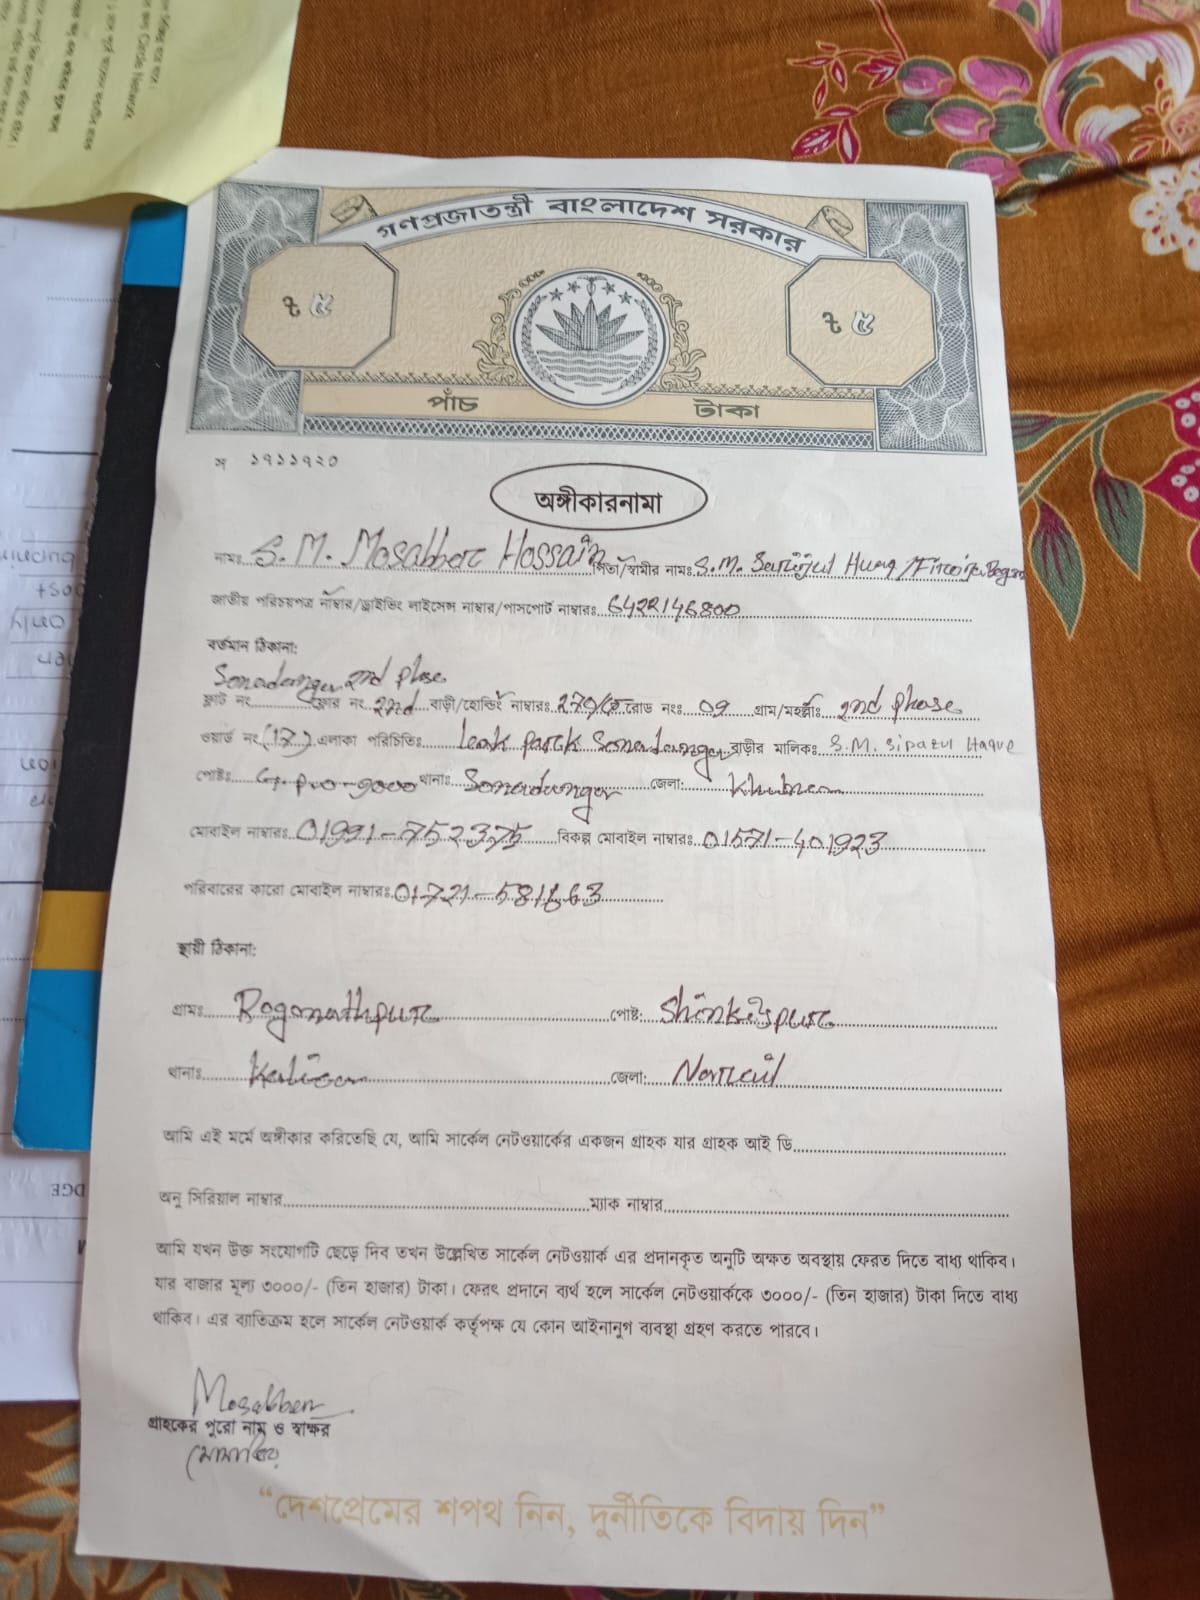 গণপ্রজাতন্ত্রী বাংলাদেশ সরকার
৳ ৫
৳ ৫
পাঁচ টাকা
স ১৭১১৭২০
অঙ্গীকারনামা
নামঃ S. M. Mosabber Hossain পিতা/স্বামীর নামঃ S. M. Serajul Huaq /Firoija Begom
জাতীয় পরিচয়পত্র নাম্বার/ড্রাইভিং লাইসেন্স নাম্বার/পাসপোর্ট নাম্বারঃ 6422146800
বর্তমান ঠিকানা:
Sonadanga 2nd phase
ফ্লাট নং ফ্লোর নং 2nd বাড়ী/হোল্ডিং নাম্বারঃ রোড নংঃ 09 গ্রাম/মহল্লাঃ 2nd phase
ওয়ার্ড নং (17) এলাকা পরিচিতিঃ park Sonadanga বাড়ীর মালিকঃ S.M. Sirazul Haque
পোষ্টঃ G.P.O-9000 থানাঃ Sonadanga জেলা: Khulna
মোবাইল নাম্বারঃ 01991-752375 বিকল্প মোবাইল নাম্বারঃ 01571-401923
পরিবারের কারো মোবাইল নাম্বারঃ
স্থায়ী ঠিকানা:
গ্রামঃ Rogonathpur পোষ্ট: Shinkeypur
থানাঃ Kalia জেলা: Narail
আমি এই মর্মে অঙ্গীকার করিতেছি যে, আমি সার্কেল নেটওয়ার্কের একজন গ্রাহক যার গ্রাহক আই ডি
অনু সিরিয়াল নাম্বার ম্যাক নাম্বার
আমি যখন উক্ত সংযোগটি ছেড়ে দিব তখন উল্লেখিত সার্কেল নেটওয়ার্ক এর প্রদানকৃত অনুটি অক্ষত অবস্থায় ফেরত দিতে বাধ্য থাকিব।
যার বাজার মূল্য ৩০০০/- (তিন হাজার) টাকা। ফেরৎ প্রদানে ব্যর্থ হলে সার্কেল নেটওয়ার্ককে ৩০০০/- (তিন হাজার) টাকা দিতে বাধ্য
থাকিব। এর ব্যাতিক্রম হলে সার্কেল নেটওয়ার্ক কর্তৃপক্ষ যে কোন আইনানুগ ব্যবস্থা গ্রহণ করতে পারবে।
Mosabber
গ্রাহকের পুরো নাম ও স্বাক্ষর
"দেশপ্রেমের শপথ নিন, দুর্নীতিকে বিদায় দিন"